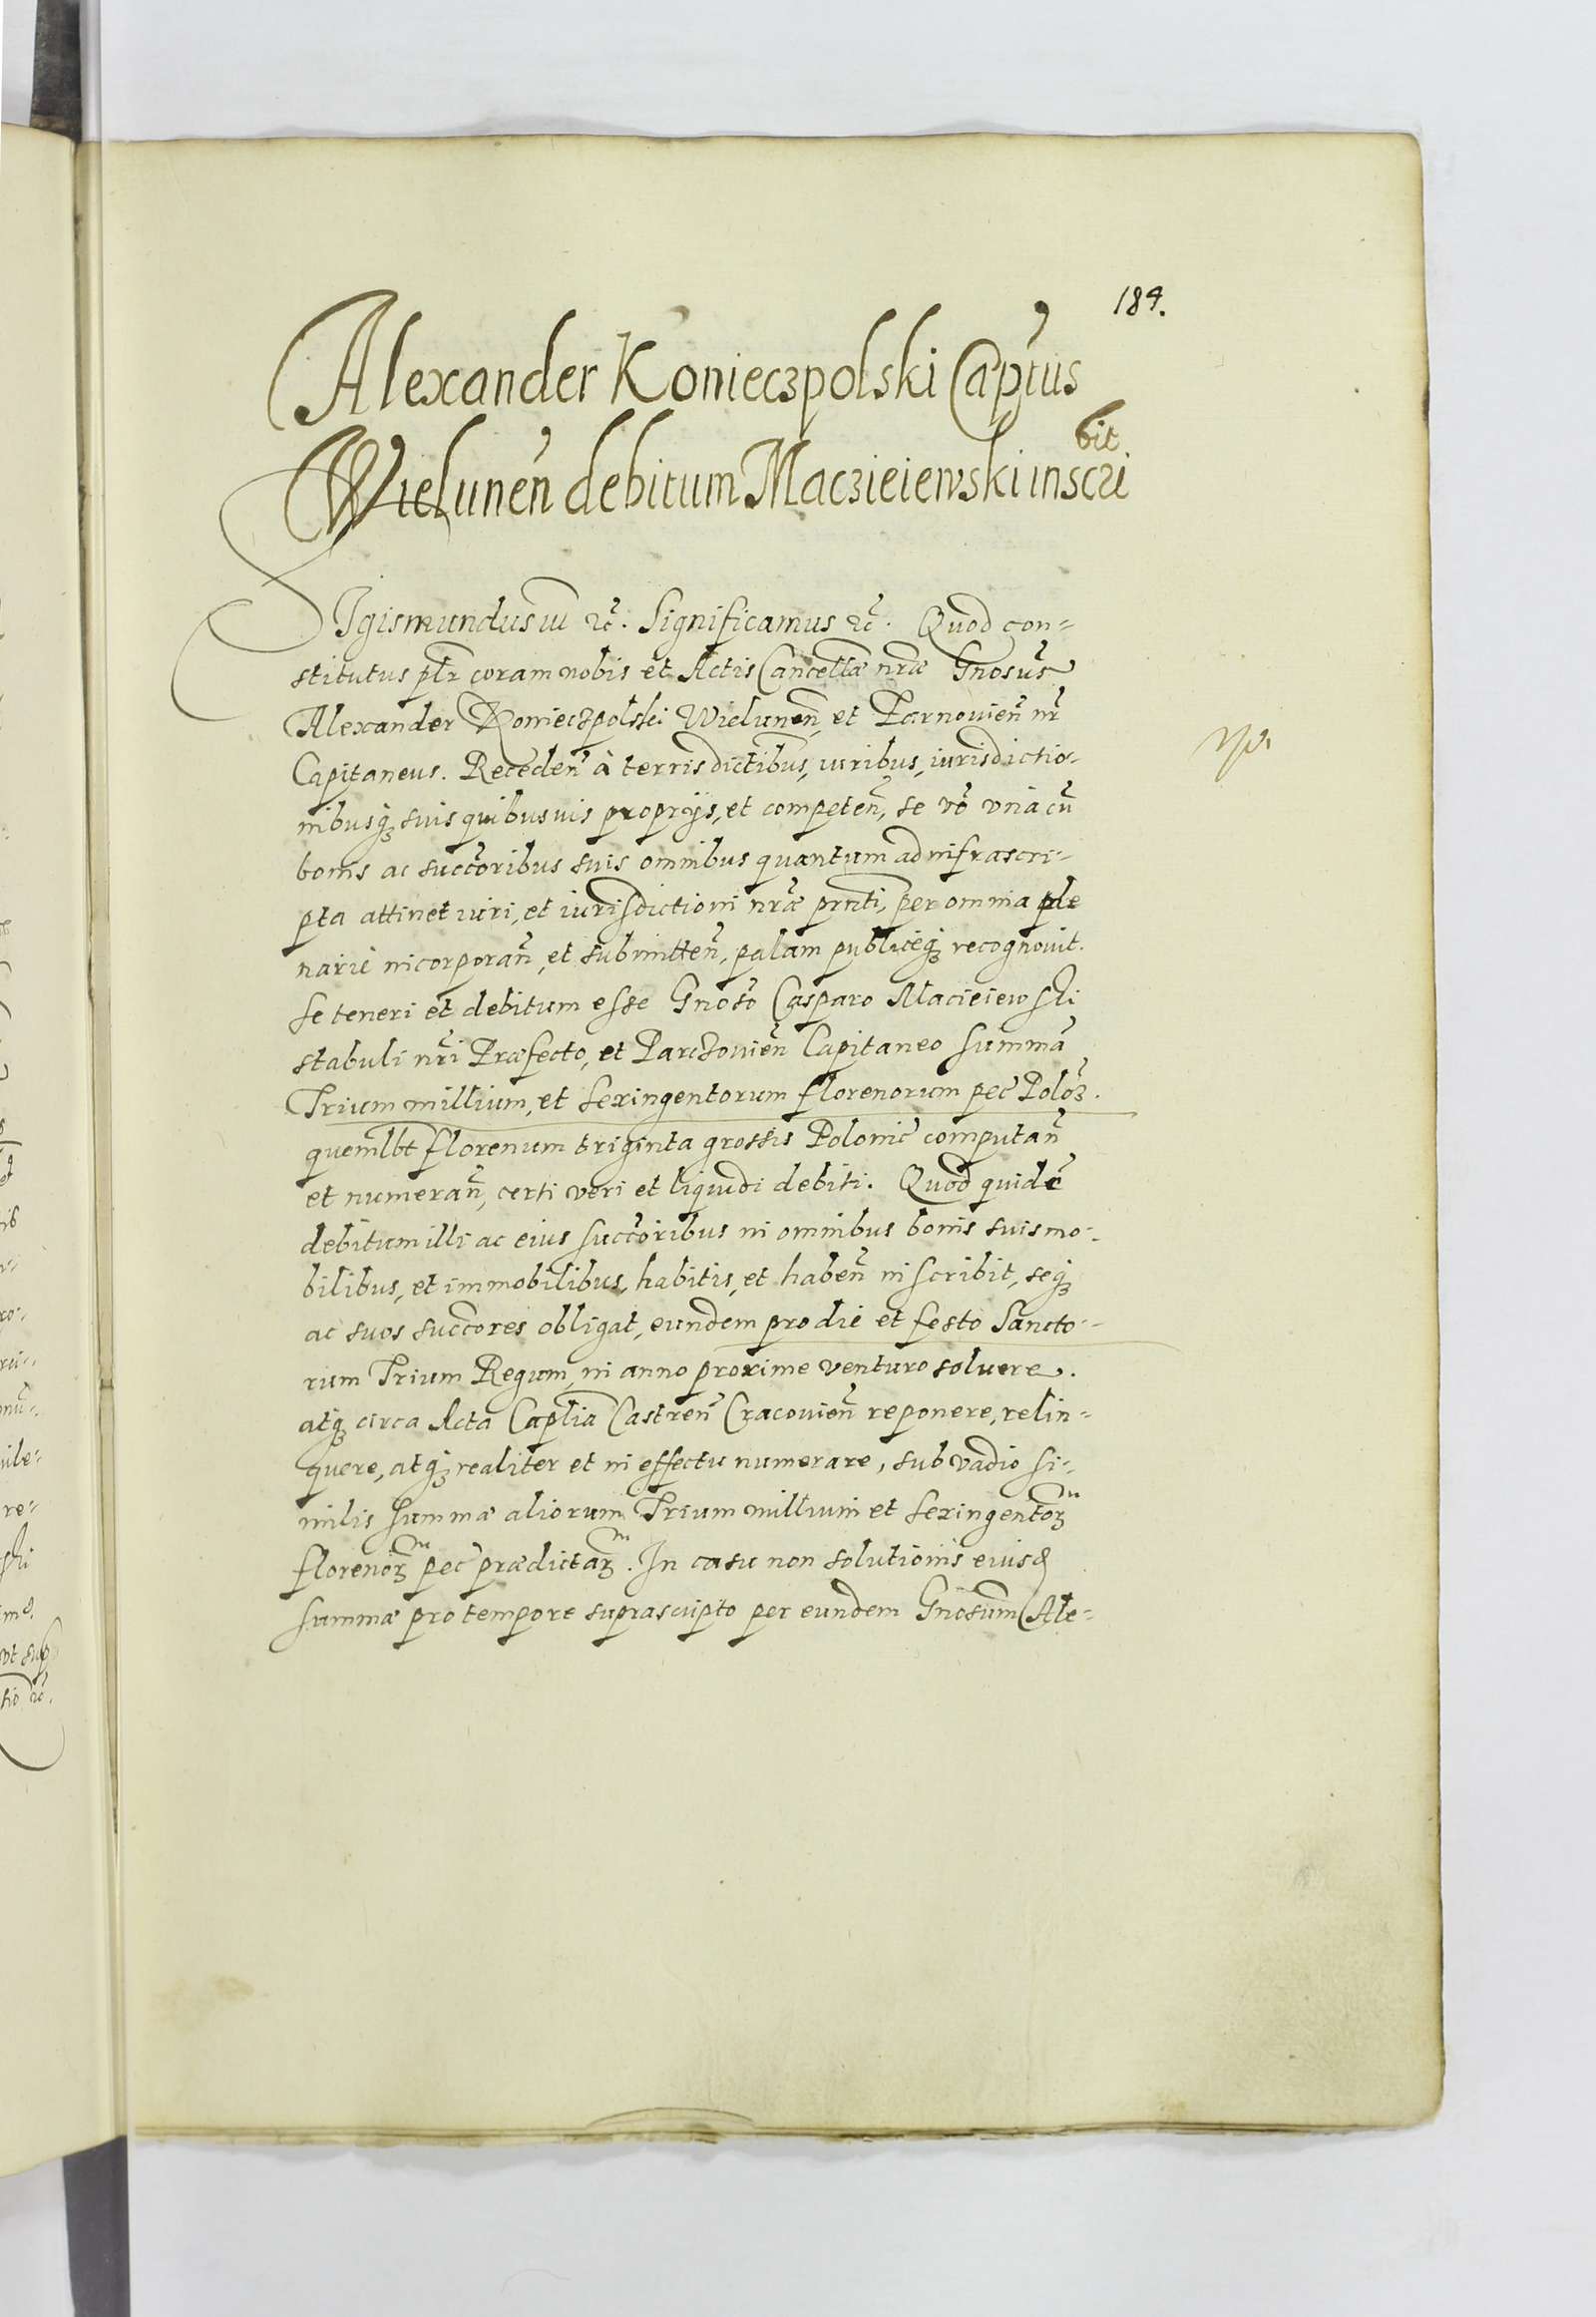 184.
Alexander Konieczpolski Captus
Wielunen̄ debitum Maczieiewski inscri
bit
SIgismundus III ꝛc̄. Significamus ꝛc̄. Quod con-
stitutus pltr coram nobis et Actis Cancellæ nr̄æ Gnosus
Alexander Konieczpolski Wielunen̄, et Parnouien̄ nr̄
Capitaneus. Receden̄ à terris dictibus, iuribus, iurisdictio-
nibusq̨ suis quibusuis proprijs, et competen̄, se vō vnà cū
bonis ac succōribus suis omnibus quantum ad infrascri-
pta attinet iuri, et iurisdictioni nr̄æ prn̄ti, per omnia ple
narié incorporan̄, et submitten̄, palam publiceq̨ recognouit.
Se teneri et debitum esse Gnoso Casparo Macieiewski
stabuli nr̄i Præfecto, et Parczouien̄ Capitaneo summā
Trium millium, et sexingentorum florenorum pec̄ Poloꝝ.
quemlbt florenum triginta grossis Polonic̄ computan̄
et numeran̄, certi veri et liquidi debiti. Quod quidē
debitum illi ac eius succōribus in omnibus bonis suis mo-
bilibus, et immobilibus, habitis, et haben̄ inscribit, seq̨
ac suos succōres obligat, eundem pro die et festo Sancto-
rum Trium Regum, in anno proxime venturo soluere.
atq̨ circa Acta Caplia Castren̄ Cracouien̄ reponere, relin-
quere, atq̨ realiter et in effectu numerare, sub vadio si-
milis summæ aliorum Trium millium et sexingentoꝝ
florenoꝝ pec̄ prædictaꝝ. In casu non solutionis eiusd
summæ pro tempore suprascripto per eundem Gnosum Ale-